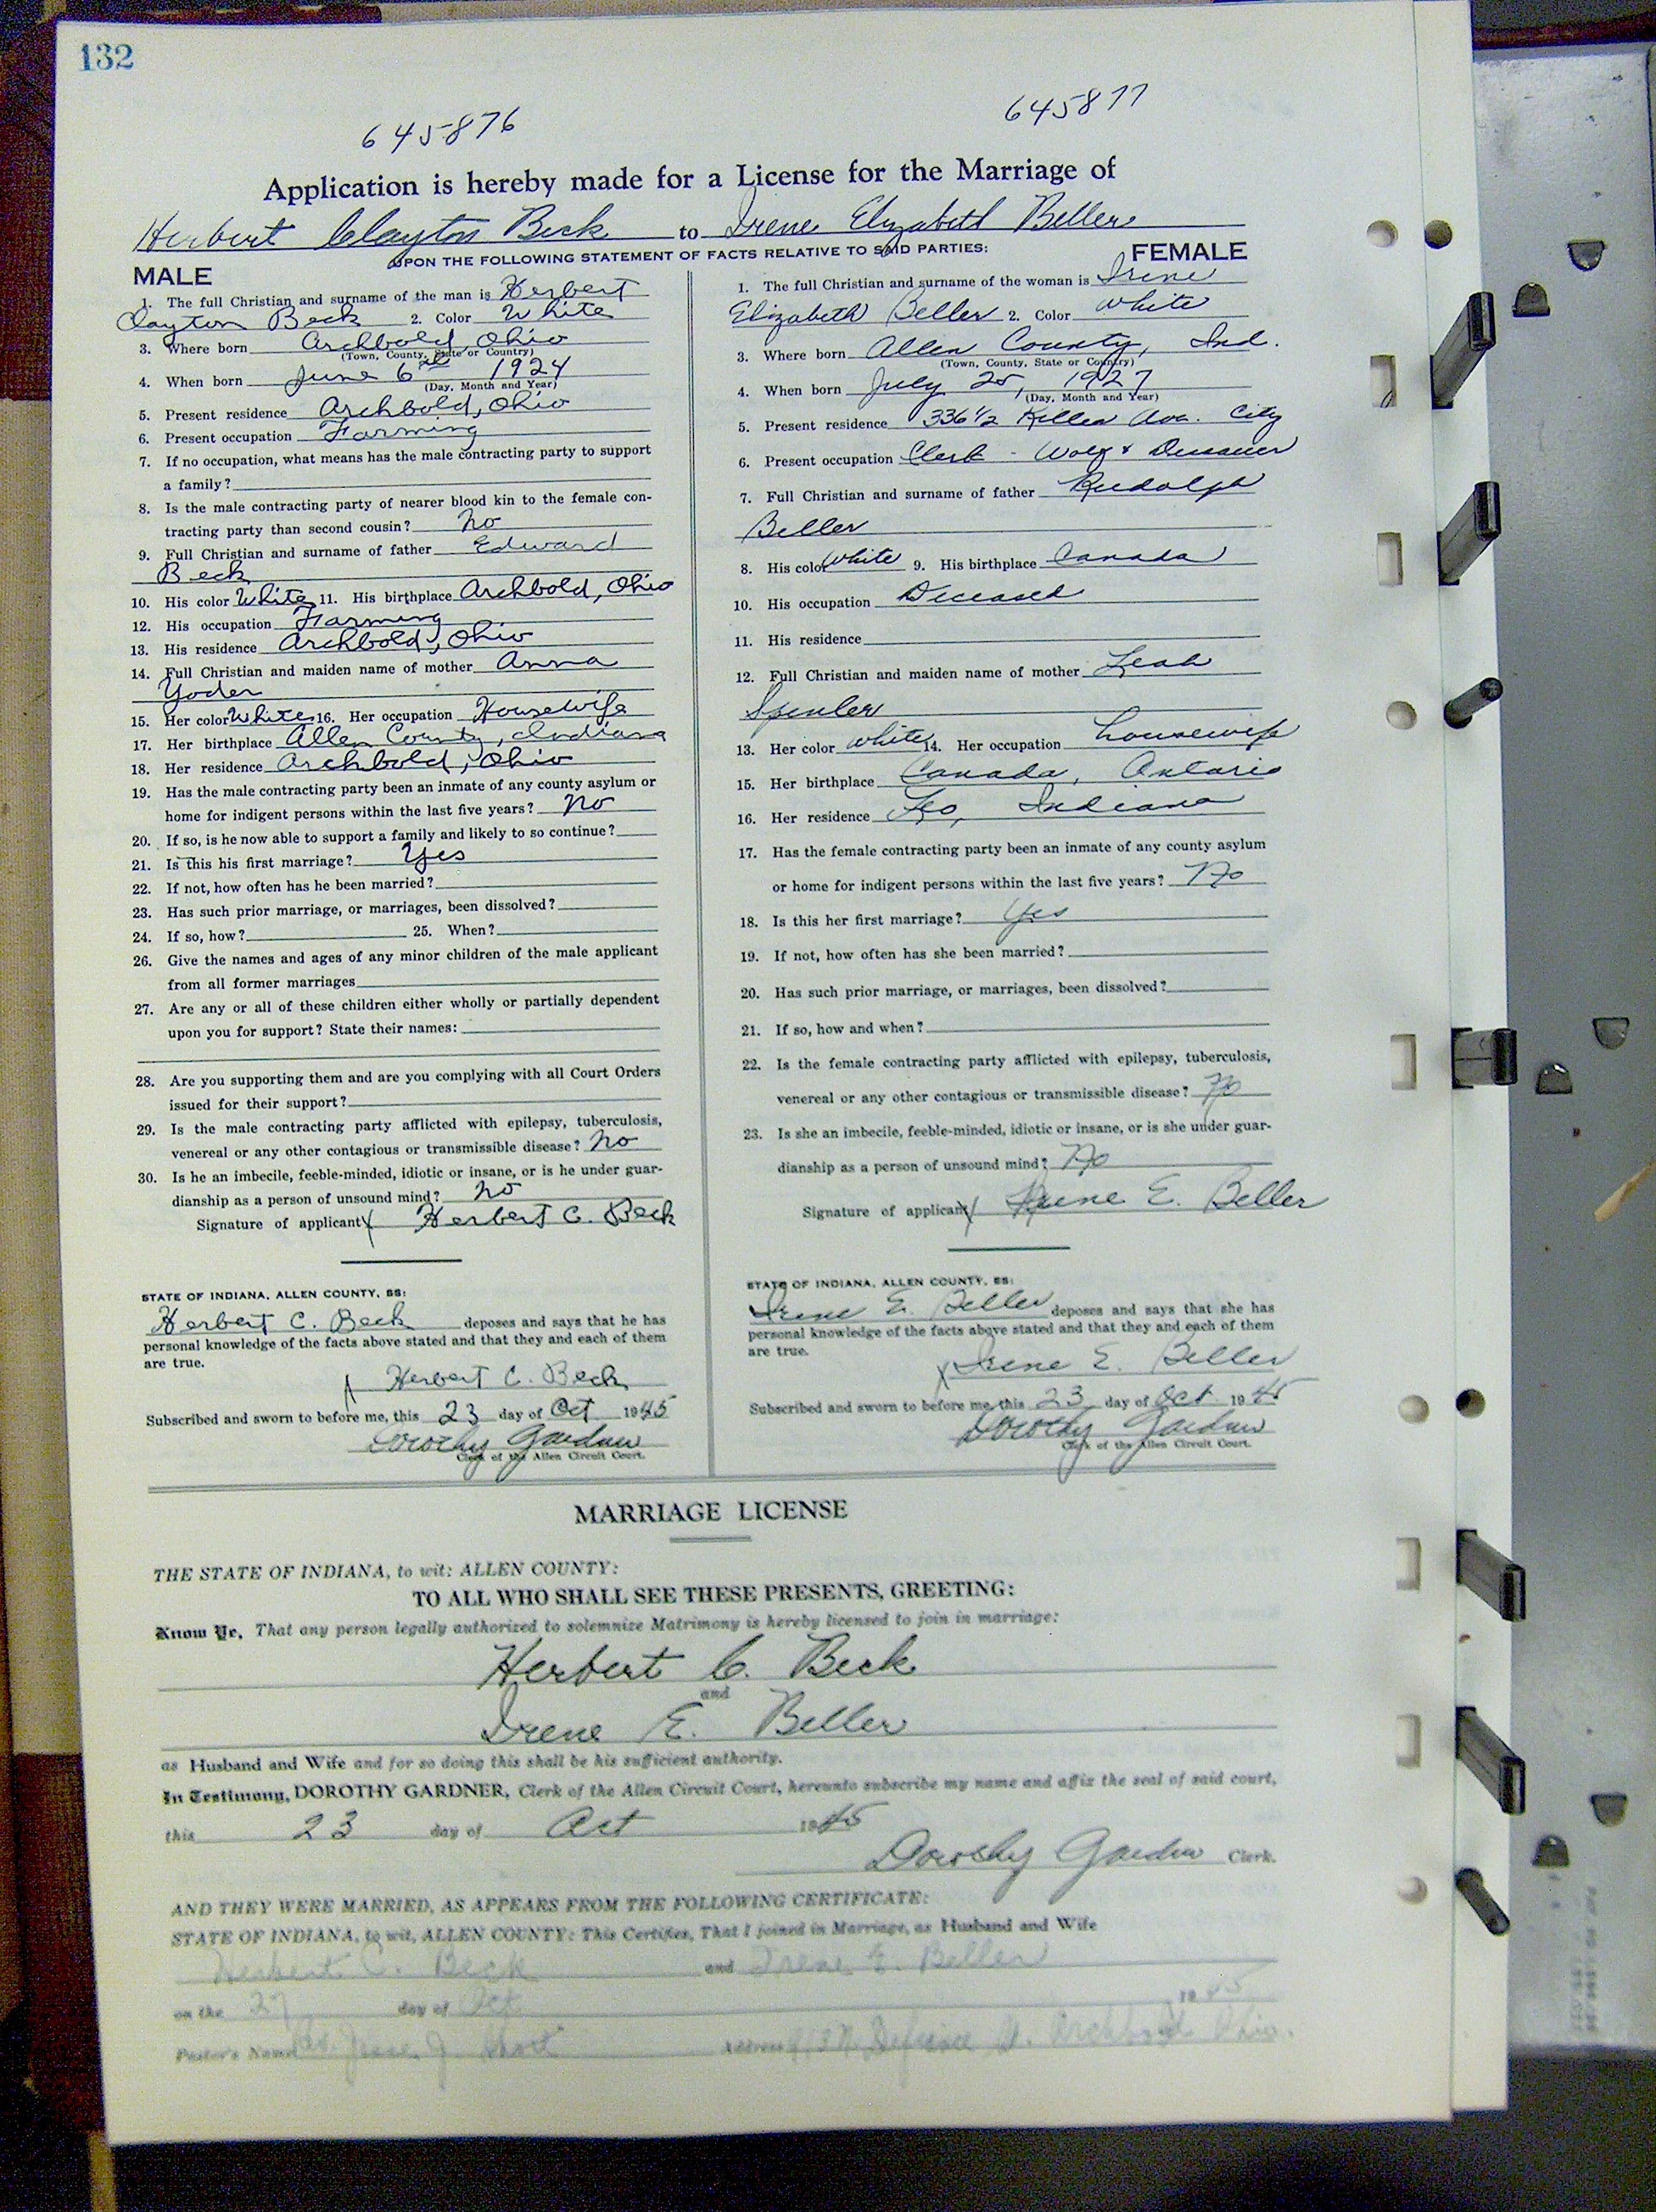 132
645876 645877
Application is hereby made for a License for the Marriage of
Herbert Clayton Beck to Irene Elizabeth Beller
UPON THE FOLLOWING STATEMENT OF FACTS RELATIVE TO SAID PARTIES:
MALE
1. The full Christian and surname of the man is Herbert
Clayton Beck 2. Color White
3. Where born Archbold, Ohio
(Town, County, State or Country)
4. When born June 6th 1924
(Day, Month and Year)
5. Present residence Archbold, Ohio
6. Present occupation Farming
7. If no occupation, what means has the male contracting party to support
a family?
8. Is the male contracting party of nearer blood kin to the female con-
tracting party than second cousin? no
9. Full Christian and surname of father Edward
Beck
10. His color White 11. His birthplace Archbold, Ohio
12. His occupation Farming
13. His residence Archbold, Ohio
14. Full Christian and maiden name of mother Anna
Yoder
15. Her color White 16. Her occupation Housewife
17. Her birthplace Allen County, Indiana
18. Her residence Archbold, Ohio
19. Has the male contracting party been an inmate of any county asylum or
home for indigent persons within the last five years? no
20. If so, is he now able to support a family and likely to so continue?
21. Is this his first marriage? Yes
22. If not, how often has he been married?
23. Has such prior marriage, or marriages, been dissolved?
24. If so, how? 25. When?
26. Give the names and ages of any minor children of the male applicant
from all former marriages
27. Are any or all of these children either wholly or partially dependent
upon you for support? State their names:
28. Are you supporting them and are you complying with all Court Orders
issued for their support?
29. Is the male contracting party afflicted with epilepsy, tuberculosis,
venereal or any other contagious or transmissible disease? no
30. Is he an imbecile, feeble-minded, idiotic or insane, or is he under guar-
dianship as a person of unsound mind? no
Signature of applicant X Herbert C. Beck
STATE OF INDIANA, ALLEN COUNTY, SS:
Herbert C. Beck deposes and says that he has
personal knowledge of the facts above stated and that they and each of them
are true.
X Herbert C. Beck
Subscribed and sworn to before me, this 23 day of Oct 1945
Dorothy Gardner
Clerk of the Allen Circuit Court.
FEMALE
1. The full Christian and surname of the woman is Irene
Elizabeth Beller 2. Color White
3. Where born Allen County, Ind.
(Town, County, State or Country)
4. When born July 25, 1927
(Day, Month and Year)
5. Present residence 336 1/2 Ave. City
6. Present occupation Clerk - Wolf & Dessauer
7. Full Christian and surname of father Rudolph
Beller
8. His color White 9. His birthplace Canada
10. His occupation Deceased
11. His residence
12. Full Christian and maiden name of mother Leah
13. Her color White 14. Her occupation housewife
15. Her birthplace Canada, Ontario
16. Her residence Leo, Indiana
17. Has the female contracting party been an inmate of any county asylum
or home for indigent persons within the last five years? No
18. Is this her first marriage? Yes
19. If not, how often has she been married?
20. Has such prior marriage, or marriages, been dissolved?
21. If so, how and when?
22. Is the female contracting party afflicted with epilepsy, tuberculosis,
venereal or any other contagious or transmissible disease? No
23. Is she an imbecile, feeble-minded, idiotic or insane, or is she under guar-
dianship as a person of unsound mind? No
Signature of applicant X Irene E. Beller
STATE OF INDIANA, ALLEN COUNTY, SS:
Irene E. Beller deposes and says that she has
personal knowledge of the facts above stated and that they and each of them
are true.
X Irene E. Beller
Subscribed and sworn to before me, this 23 day of Oct 1945
Dorothy Gardner
Clerk of the Allen Circuit Court.
MARRIAGE LICENSE
THE STATE OF INDIANA, to wit: ALLEN COUNTY:
TO ALL WHO SHALL SEE THESE PRESENTS, GREETING:
Know Ye, That any person legally authorized to solemnize Matrimony is hereby licensed to join in marriage:
Herbert C. Beck
and
Irene E. Beller
as Husband and Wife and for so doing this shall be his sufficient authority.
In Testimony, DOROTHY GARDNER, Clerk of the Allen Circuit Court, hereunto subscribe my name and affix the seal of said court,
this 23 day of Oct 1945
Dorothy Gardner Clerk.
AND THEY WERE MARRIED, AS APPEARS FROM THE FOLLOWING CERTIFICATE:
STATE OF INDIANA, to wit, ALLEN COUNTY: This Certifies, That I joined in Marriage, as Husband and Wife
Herbert C. Beck and Irene E. Beller
on the 27 day of Oct 1945
Pastor's Name Jesse J. Short Address Defiance St. Archbold Ohio.